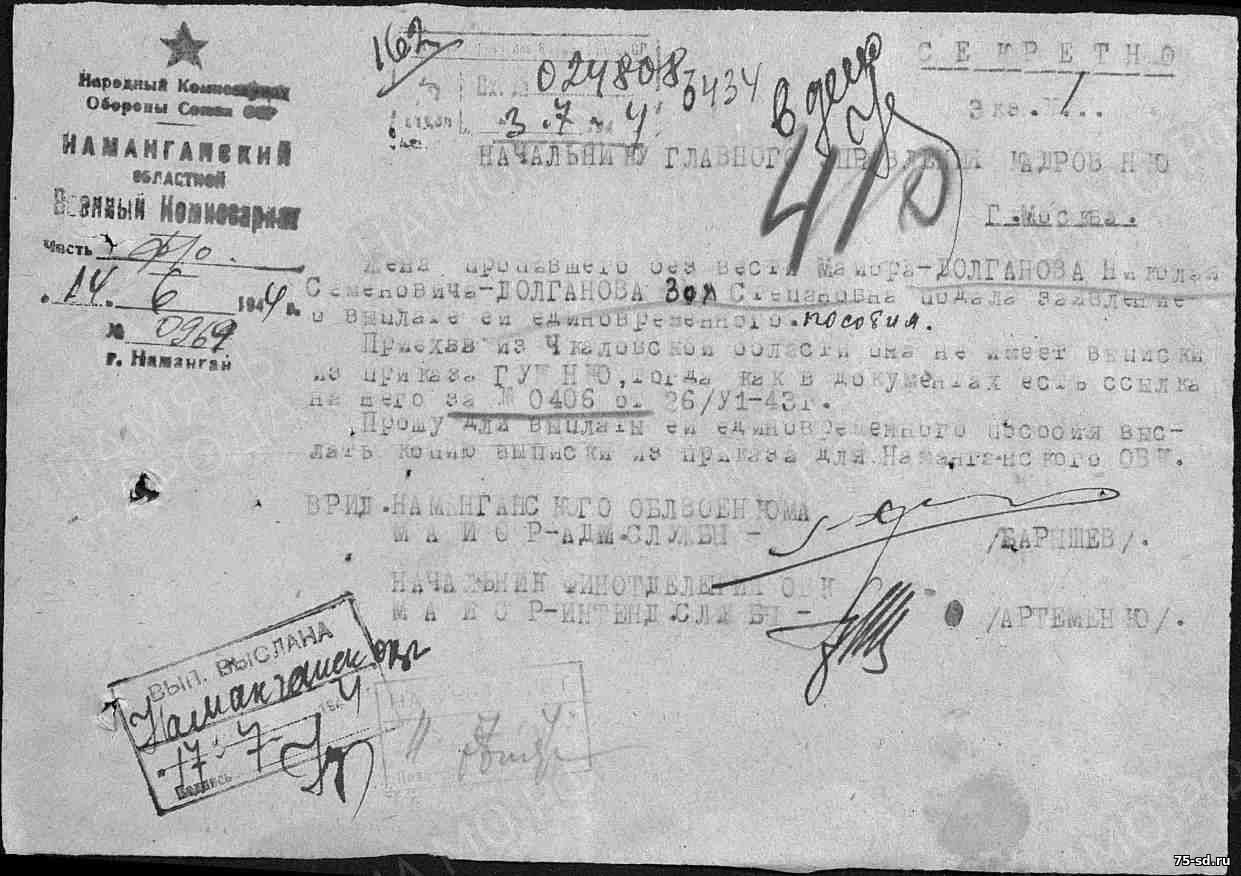 Народный Комиссариат
Обороны Союза ССР
НАМАНГАНСКИЙ
ОБЛАСТНОЙ
Военный Комиссариат
Часть
14. 6 1944 г.
№ 0969
г. Наманган
162
Вх. 024808
3.7 4
6434
в дело
410
СЕКРЕТНО
Экз.№ 1..
НАЧАЛЬНИКУ ГЛАВНОГО УПРАВЛЕНИЯ КАДРОВ НКО
Г.Москва.
Жена пропавшего без вести майора-ДОЛГАНОВА Николая
Семеновича-ДОЛГАНОВА Зоя Степановна подала заявление
о выплате ей единовременного.пособия.
Приехав из Чкаловской области она не имеет выписки
из приказа ГУК НКО,тогда как в документах есть ссылка
на него за № 0406 от 26/У1-43г.
Прошу для выплаты ей единовременного пособия выс-
лать копию выписки из приказа для Наманганского ОВК.
ВРИД.НАМАНГАНСКОГО ОБЛВОЕНКОМА
МАЙОР-АДМ.СЛУЖБЫ - /БАРЫШЕВ/.
НАЧАЛЬНИК ФИНОТДЕЛЕНИЯ ОВК
МАЙОР-ИНТЕНД.СЛУЖБЫ - /АРТЕМЕНКО/.
ВЫП. ВЫСЛАНА
Наманганск
17. 7 4
Подпись
НА
11 7 4
75-sd.ru